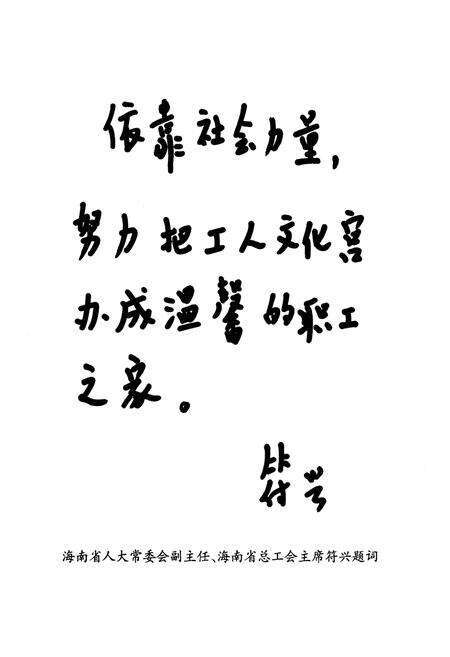 依靠社会力量，
努力把工人文化宫
办成温馨的职工
之家。
符兴
海南省人大常委会副主任、海南省总工会主席符兴题词